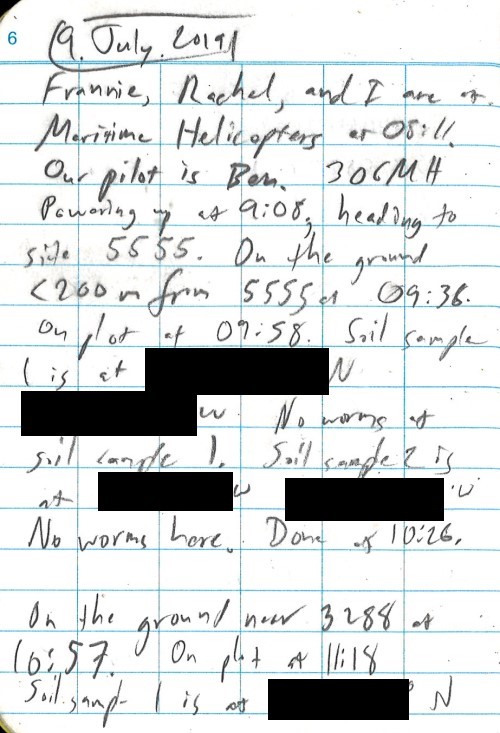 6
9. July. 2019
Frannie, Rachel, and I are at
Maritime Helicopters at 08:11.
Our pilot is Ben. 306MH
Powering up at 9:08, heading to
site 5555. On the ground
<200 m from 5555 at 09:36.
On plot at 09:58. Soil sample
1 is at N
W No worms at
soil sample 1. Soil sample 2 is
at W
No worms here. Done at 10:26.
On the ground near 3288 at
10:57. On plot at 11:18
Soil sample 1 is at ° N